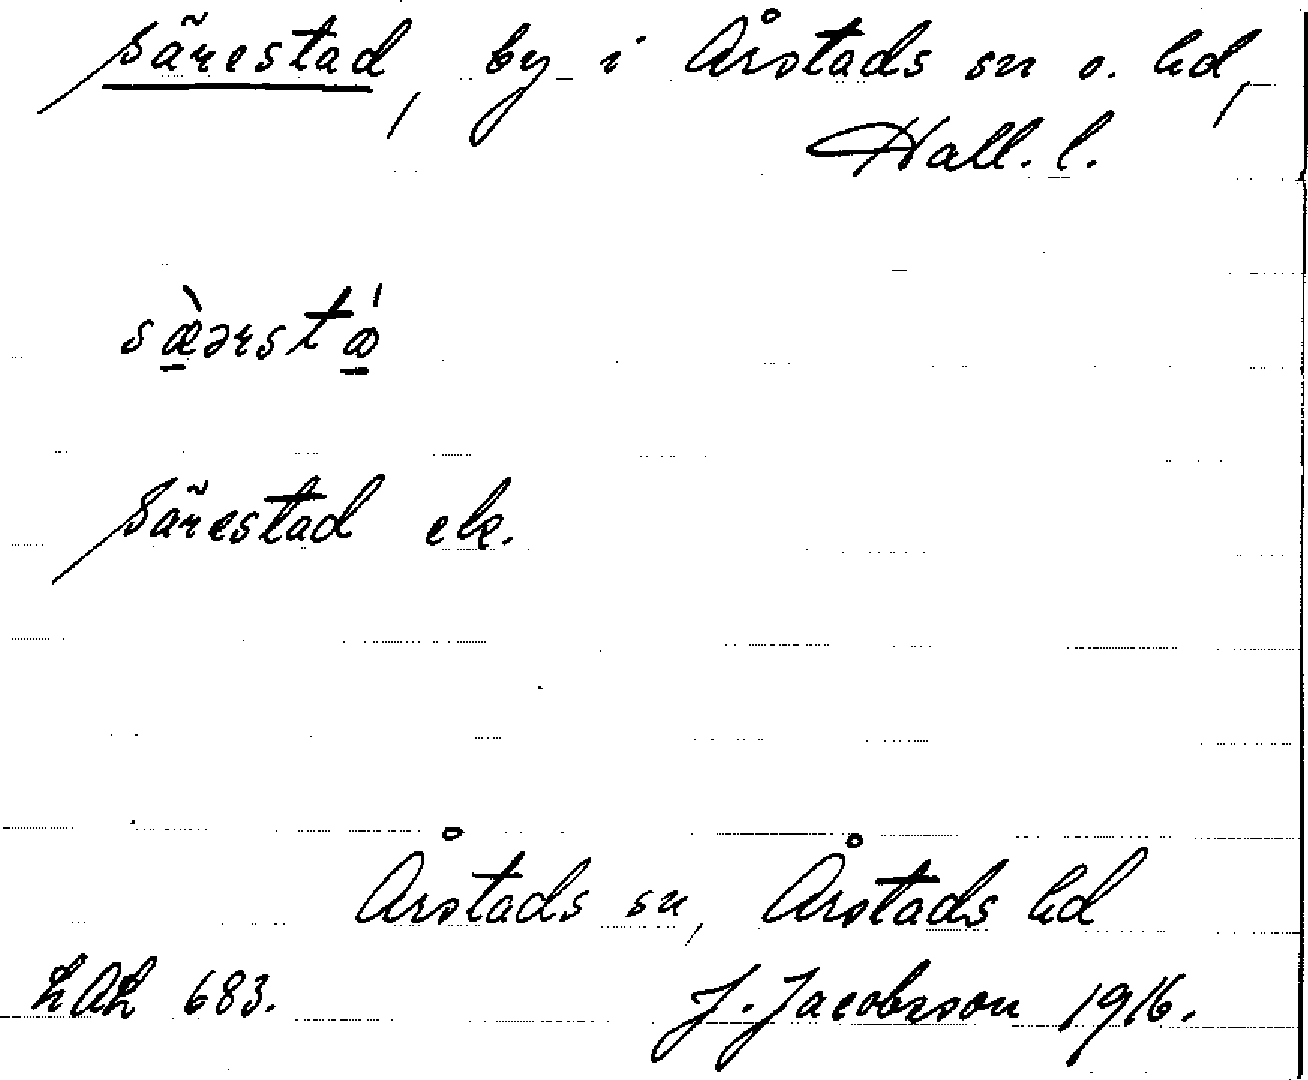 Särestad, by i Årstads sn o. hd,
Hall. l.
sæ̀ərstá
Särestad ek.
Årstads sn, Årstads hd
LAL 683. J. Jacobsson 1916.